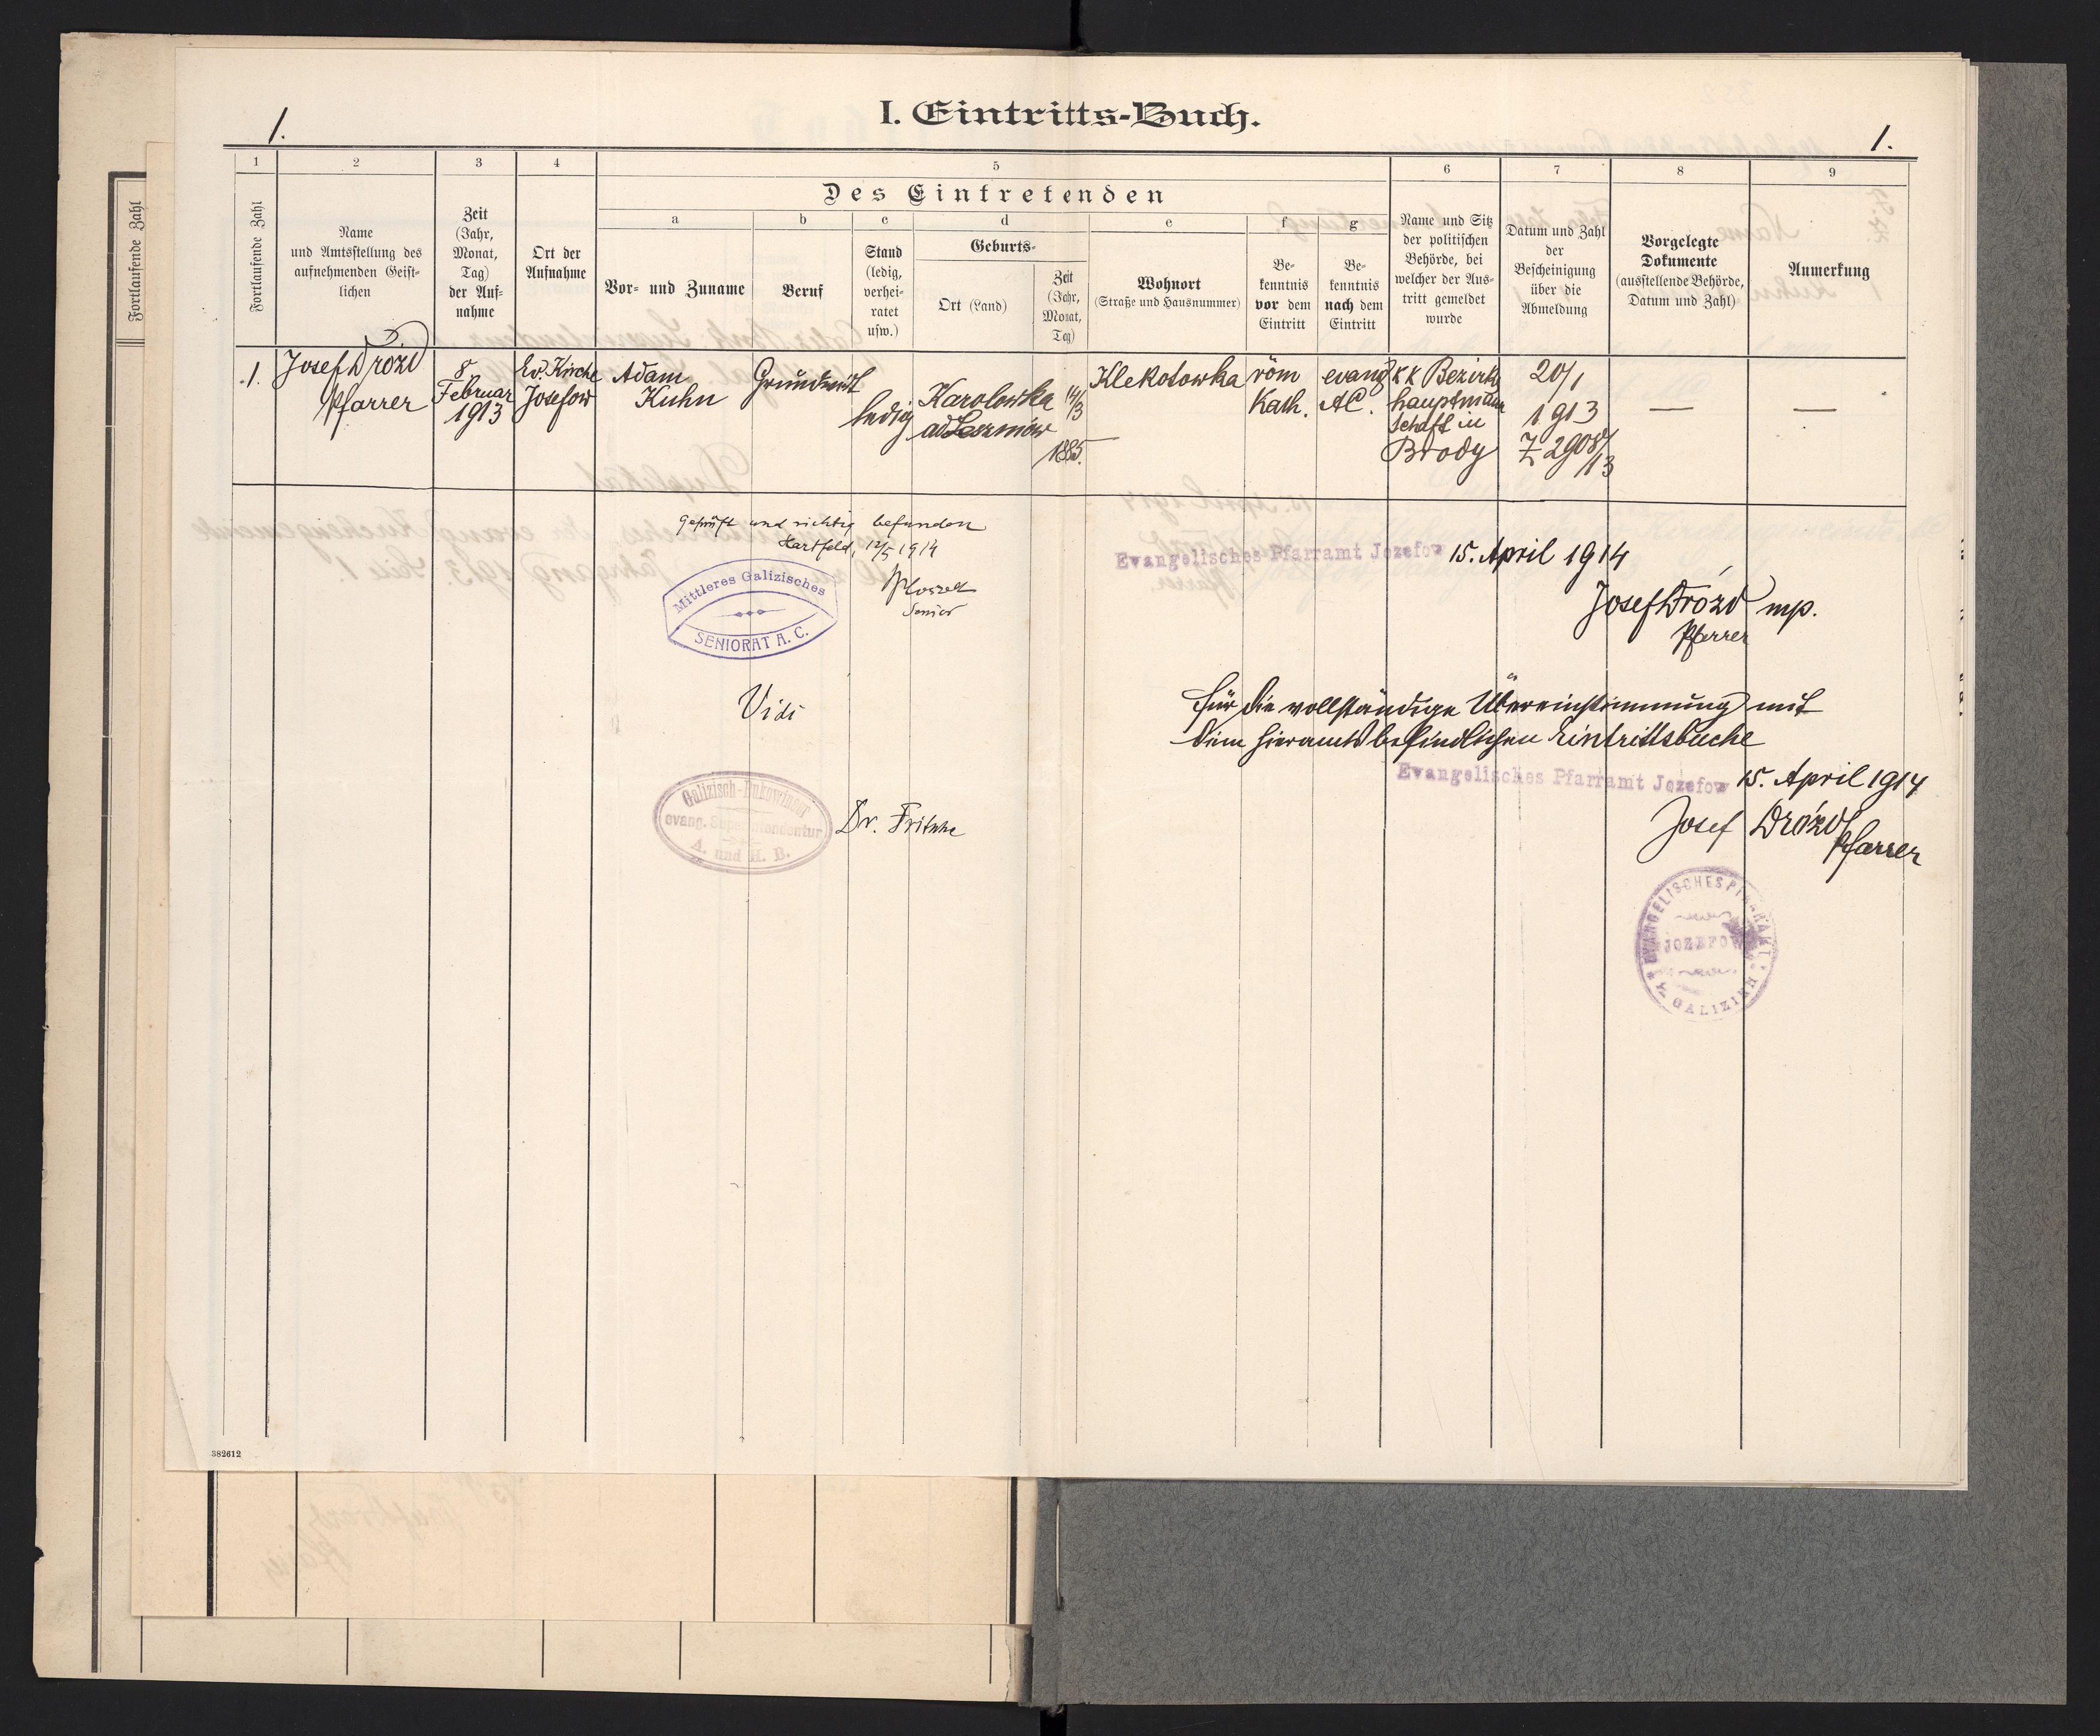 I. Eintritts-Buch.
1.
1.
Fortlaufende Zahl
1
2
3
4
5
6
7
8
9
Des Eintretenden
a
b
c
d
e
f
g
Fortlaufende Zahl
Name
und Amtsstellung des
aufnehmenden Geist-
lichen
Zeit
(Jahr,
Monat,
Tag)
der Auf-
nahme
Ort der
Aufnahme
Vor- und Zuname
Beruf
Stand
(ledig,
verhei-
ratet
usw.)
Geburts-
Ort (Land)
Zeit
(Jahr,
Monat,
Tag)
Wohnort
(Straße und Hausnummer)
Be-
kenntnis
vor dem
Eintritt
Be-
kenntnis
nach dem
Eintritt
Name und Sitz
der politischen
Behörde, bei
welcher der Aus-
tritt gemeldet
wurde
Datum und Zahl
der
Bescheinigung
über die
Abmeldung
Vorgelegte
Dokumente
(ausstellende Behörde,
Datum und Zahl)
Anmerkung
1.
Josef Drózd
Pfarrer
8
Februar
1913
Ev. Kirche
Josefow
Adam
Kuhn
Grundwirt
ledig
Karolowka
ad Leszniów
14/3
1885.
Klekotowka
röm
Kath.
evang
AC.
K K Bezirks
hauptmann
schaft in
Brody
20/1
1913
Z 2908/13
—
—
Geprüft und richtig befunden
Hartfeld, 12/5 1914
Senior
Mittleres Galizisches
SENIORAT A. C.
Evangelisches Pfarramt Jozefow 15. April 1914
Josef Drózd mp.
Pfarrer
Vidi
Für die vollständige Übereinstimmung mit
dem hieramts befindlichen Eintrittsbuche
Evangelisches Pfarramt Jozefow 15. April 1914
Josef Drózd
Pfarrer
Galizisch-Bukowinaer
evang. Superintendentur
A. und H. B.
Dr. Fritsche
EVANGELISCHES PFARRAMT
JOZEFOW
GALIZIEN
382612